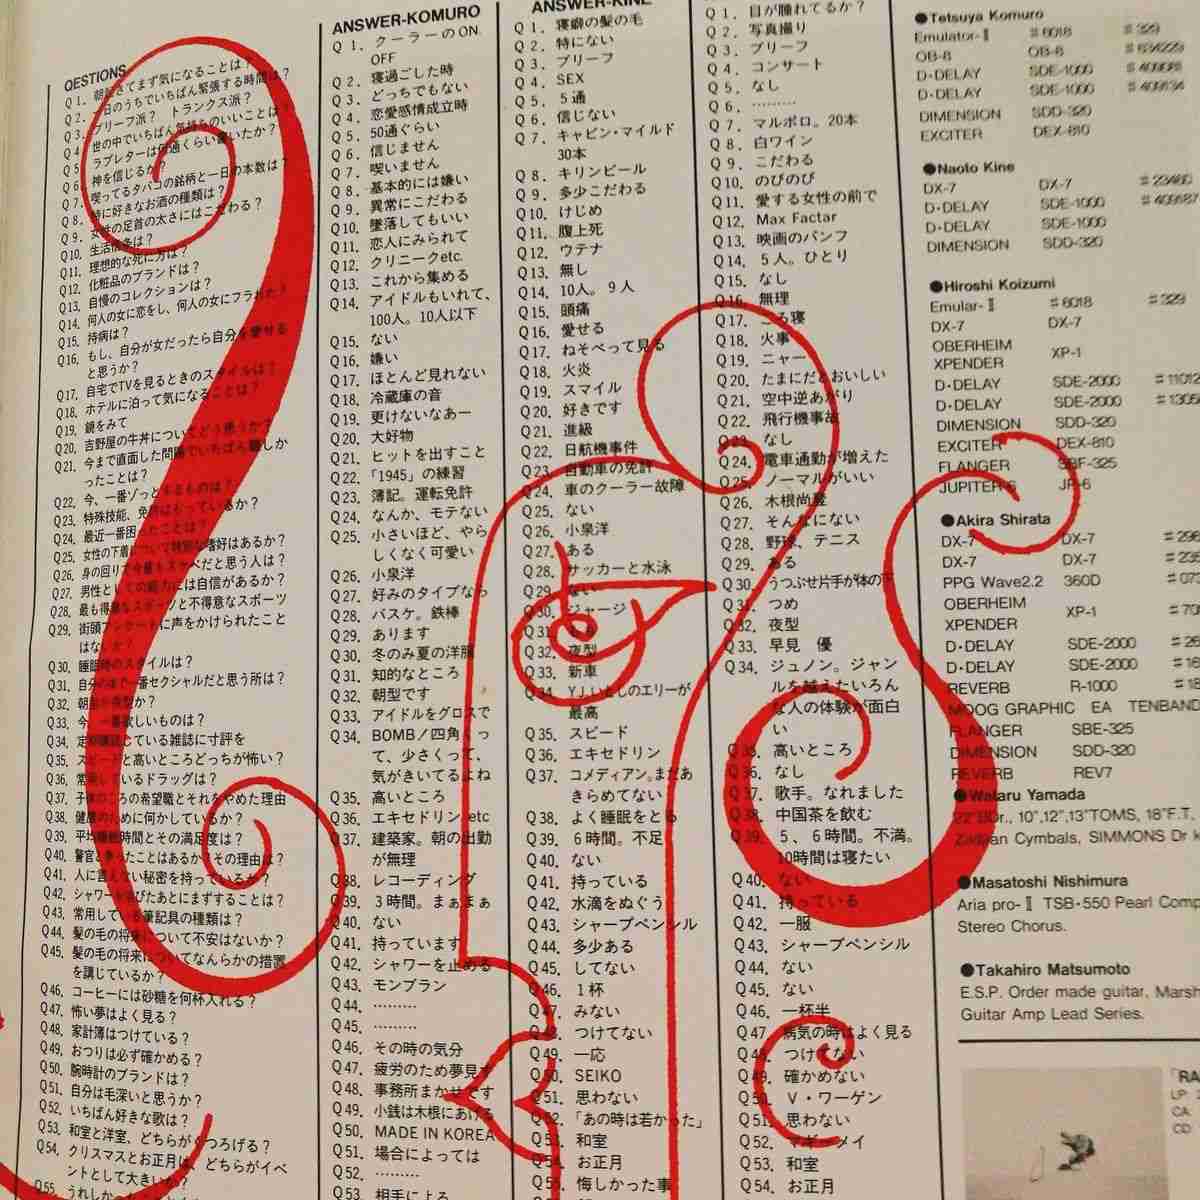 QESTIONS
Q 1. 朝起きてまず気になることは？
Q 2. 一日のうちでいちばん緊張する時間は？
Q 3. ブリーフ派？ トランクス派？
Q 4. 世の中でいちばん気持ちのいいことは？
Q 5. ラブレターは何通くらい書いたか？
Q 6. 神を信じるか？
Q 7. 喫ってるタバコの銘柄と一日の本数は？
Q 8. 特に好きなお酒の種類は？
Q 9. 女性の足首の太さにはこだわる？
Q10. 生活信条は？
Q11. 理想的な死に方は？
Q12. 化粧品のブランドは？
Q13. 自慢のコレクションは？
Q14. 何人の女に恋をし、何人の女にフラれた？
Q15. 持病は？
Q16. もし、自分が女だったら自分を愛せる
と思うか？
Q17. 自宅でTVを見るときのスタイルは？
Q18. ホテルに泊って気になることは？
Q19. 鏡をみて
Q20. 吉野屋の牛丼についてどう思うか？
Q21. 今まで直面した問題でいちばん難しか
ったことは？
Q22. 今、一番ゾッとするものは？
Q23. 特殊技能、免許はもっているか？
Q24. 最近一番困ったことは？
Q25. 女性の下着について特別な嗜好はあるか？
Q26. 身の回りで今最もスケベだと思う人は？
Q27. 男性としての能力には自信があるか？
Q28. 最も得意なスポーツと不得意なスポーツ
Q29. 街頭アンケートに声をかけられたこと
はないか？
Q30. 睡眠時のスタイルは？
Q31. 自分の体で一番セクシャルだと思う所は？
Q32. 朝型か夜型か？
Q33. 今、一番欲しいものは？
Q34. 定期購読している雑誌に寸評を
Q35. スピードと高いところどっちが怖い？
Q36. 常用しているドラッグは？
Q37. 子供のころの希望職とそれをやめた理由
Q38. 健康のために何かしているか？
Q39. 平均睡眠時間とその満足度は？
Q40. 警官と争ったことはあるか？その理由は？
Q41. 人に言えない秘密を持っているか？
Q42. シャワーを浴びたあとにまずすることは？
Q43. 常用している筆記具の種類は？
Q44. 髪の毛の将来について不安はないか？
Q45. 髪の毛の将来についてなんらかの措置
を講じているか？
Q46. コーヒーには砂糖を何杯入れる？
Q47. 怖い夢はよく見る？
Q48. 家計簿はつけている？
Q49. おつりは必ず確かめる？
Q50. 腕時計のブランドは？
Q51. 自分は毛深いと思うか？
Q52. いちばん好きな歌は？
Q53. 和室と洋室、どちらがくつろげる？
Q54. クリスマスとお正月は、どちらがイベ
ントとして大きいか？
Q55. うれしかった
ANSWER-KOMURO
Q 1. クーラーのON、
OFF
Q 2. 寝過ごした時
Q 3. どっちでもない
Q 4. 恋愛感情成立時
Q 5. 50通ぐらい
Q 6. 信じません
Q 7. 喫いません
Q 8. 基本的には嫌い
Q 9. 異常にこだわる
Q10. 墜落してもいい
Q11. 恋人にみられて
Q12. クリニークetc.
Q13. これから集める
Q14. アイドルもいれて、
100人。10人以下
Q15. ない
Q16. 嫌い
Q17. ほとんど見れない
Q18. 冷蔵庫の音
Q19. 更けないなあー
Q20. 大好物
Q21. ヒットを出すこと
Q22. 「1945」の練習
Q23. 簿記。運転免許
Q24. なんか、モテない
Q25. 小さいほど、やら
しくなく可愛い
Q26. 小泉洋
Q27. 好みのタイプなら
Q28. バスケ。鉄棒
Q29. あります
Q30. 冬のみ夏の洋服
Q31. 知的なところ
Q32. 朝型です
Q33. アイドルをグロスで
Q34. BOMB／四角くっ
て、少さくって、
気がきいてるよね
Q35. 高いところ
Q36. エキセドリン etc
Q37. 建築家。朝の出勤
が無理
Q38. レコーディング
Q39. 3時間。まぁまぁ
Q40. ない
Q41. 持っています
Q42. シャワーを止める
Q43. モンブラン
Q44. ………
Q45. ………
Q46. その時の気分
Q47. 疲労のため夢見ず
Q48. 事務所まかせです
Q49. 小銭は木根にあげる
Q50. MADE IN KOREA
Q51. 場合によっては
Q52. ………
Q53. 相手による
ANSWER-KINE
Q 1. 寝癖の髪の毛
Q 2. 特にない
Q 3. ブリーフ
Q 4. SEX
Q 5. 5通
Q 6. 信じない
Q 7. キャビン・マイルド
30本
Q 8. キリンビール
Q 9. 多少こだわる
Q10. けじめ
Q11. 腹上死
Q12. ウテナ
Q13. 無し
Q14. 10人。9人
Q15. 頭痛
Q16. 愛せる
Q17. ねそべって見る
Q18. 火炎
Q19. スマイル
Q20. 好きです
Q21. 進級
Q22. 日航機事件
Q23. 自動車の免許
Q24. 車のクーラー故障
Q25. ない
Q26. 小泉洋
Q27. ある
Q28. サッカーと水泳
Q29. ない
Q30. ジャージ
Q31.
Q32. 夜型
Q33. 新車
Q34. YJ.いとしのエリーが
最高
Q35. スピード
Q36. エキセドリン
Q37. コメディアン。まだあ
きらめてない
Q38. よく睡眠をとる
Q39. 6時間。不足
Q40. ない
Q41. 持っている
Q42. 水滴をぬぐう
Q43. シャープペンシル
Q44. 多少ある
Q45. してない
Q46. 1杯
Q47. みない
Q48. つけてない
Q49. 一応
Q50. SEIKO
Q51. 思わない
Q52. 「あの時は若かった」
Q53. 和室
Q54. お正月
Q55. 悔しかった事
Q 1. 目が腫れてるか？
Q 2. 写真撮り
Q 3. ブリーフ
Q 4. コンサート
Q 5. なし
Q 6. ………
Q 7. マルボロ。20本
Q 8. 白ワイン
Q 9. こだわる
Q10. のびのび
Q11. 愛する女性の前で
Q12. Max Factar
Q13. 映画のパンフ
Q14. 5人。ひとり
Q15. なし
Q16. 無理
Q17. ごろ寝
Q18. 火事
Q19. ニャー
Q20. たまにだとおいしい
Q21. 空中逆あがり
Q22. 飛行機事故
Q23. なし
Q24. 電車通勤が増えた
Q25. ノーマルがいい
Q26. 木根尚登
Q27. そんなにない
Q28. 野球、テニス
Q29. ある
Q30. うつぶせ片手が体の下
Q31. つめ
Q32. 夜型
Q33. 早見 優
Q34. ジュノン。ジャン
ルを越えたいろん
な人の体験が面白
い
Q35. 高いところ
Q36. なし
Q37. 歌手。なれました
Q38. 中国茶を飲む
Q39. 5、6時間。不満。
10時間は寝たい
Q40. ない
Q41. 持っている
Q42. 一服
Q43. シャープペンシル
Q44. ない
Q45. ない
Q46. 一杯半
Q47. 病気の時はよく見る
Q48. つけてない
Q49. 確かめない
Q50. V・ワーゲン
Q51. 思わない
Q52. マギー・メイ
Q53. 和室
Q54. お正月
●Tetsuya Komuro
Emulator-Ⅱ ♯6018 ♯329
OB-8 OB-8 ♯634229
D・DELAY SDE-1000
D・DELAY SDE-1000 ♯409134
DIMENSION SDD-320
EXCITER DEX-810
●Naoto Kine
DX-7 DX-7 ♯23460
D・DELAY SDE-1000 ♯409187
D・DELAY SDE-1000
DIMENSION SDD-320
●Hiroshi Koizumi
Emular-Ⅱ ♯6018 ♯329
DX-7 DX-7
OBERHEIM
XPENDER XP-1
D・DELAY SDE-2000 ♯11012
D・DELAY SDE-2000 ♯1305
DIMENSION SDD-320
EXCITER DEX-810
FLANGER SBF-325
JUPITER-6 JP-6
●Akira Shirata
DX-7 DX-7 ♯296
DX-7 DX-7 ♯235
PPG Wave2.2 360D ♯073
OBERHEIM
XPENDER XP-1 ♯70
D・DELAY SDE-2000 ♯26
D・DELAY SDE-2000 ♯16
REVERB R-1000 ♯18
MOOG GRAPHIC EA TENBAND
FLANGER SBE-325
DIMENSION SDD-320
REVERB REV7
●Wataru Yamada
22"BDr., 10",12",13"TOMS, 18"F.T.
Zildjian Cymbals, SIMMONS Dr
●Masatoshi Nishimura
Aria pro-Ⅱ TSB-550 Pearl Comp
Stereo Chorus.
●Takahiro Matsumoto
E.S.P. Order made guitar, Marsh
Guitar Amp Lead Series.
「RA
LP
CA
CD